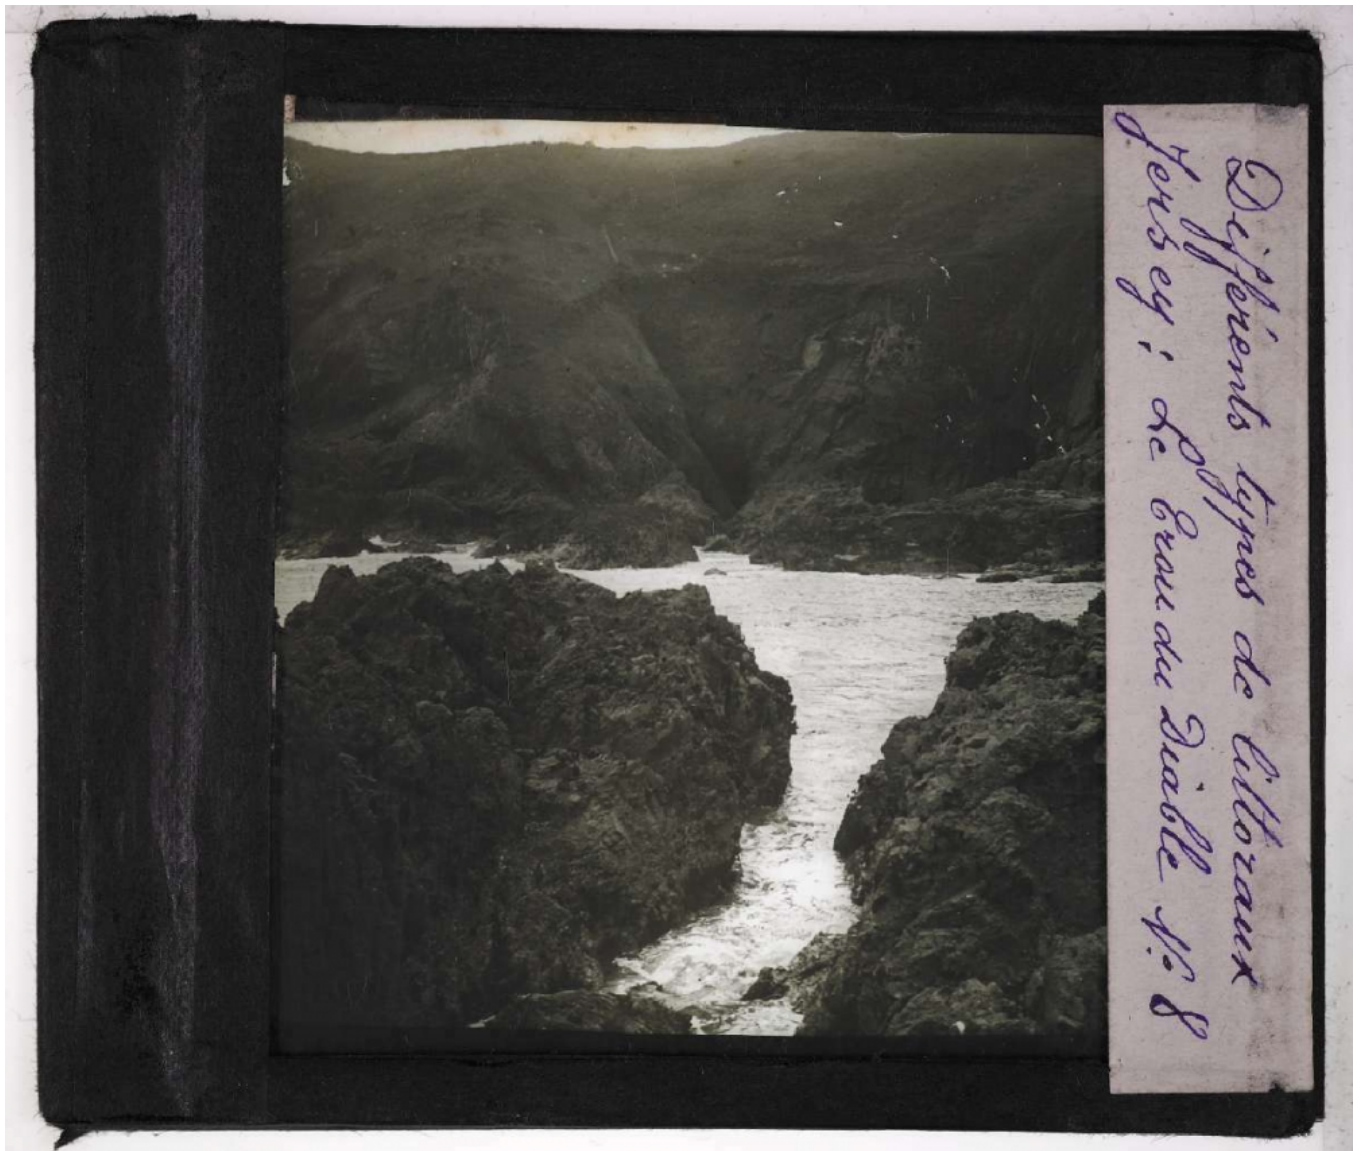 Différents types de littoraux
Jersey : Le Trou du Diable N: 8